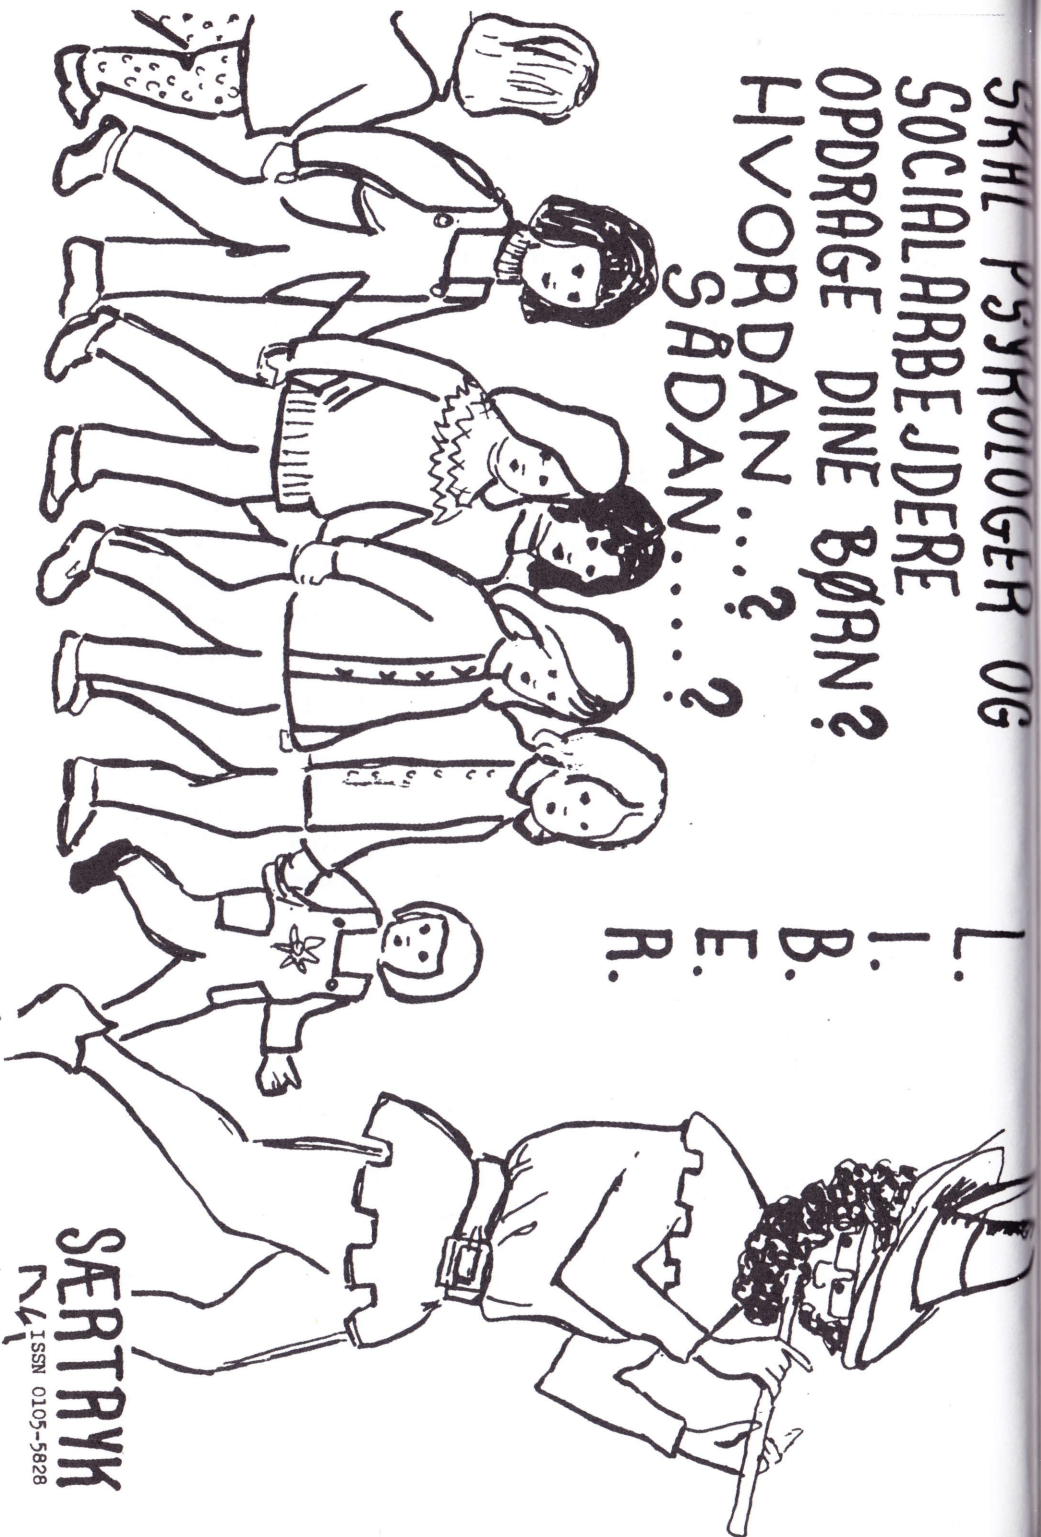 SKAL PSYKOLOGER OG
SOCIALARBEJDERE
OPDRAGE DINE BØRN?
HVORDAN....?
SÅDAN.....?
L.
I.
B.
E.
R.
SÆRTRYK
ISSN 0105-5828